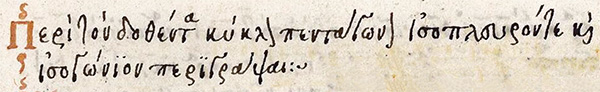 Περὶ τὸν δοθέντα κύκλον πεντάγωνον ἰσόπλευρόν τε καὶ
ἰσογώνϊον περϊγράψαι:~